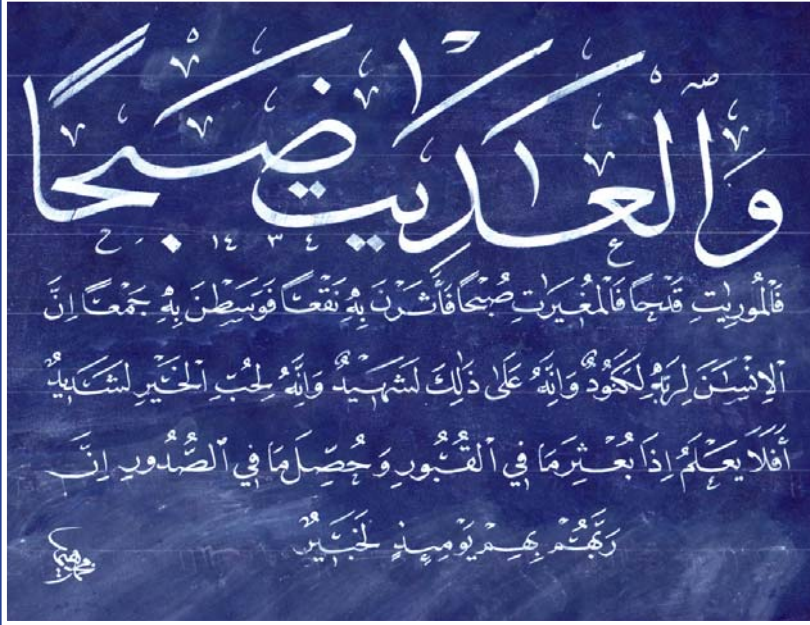 وَٱلْعَٰدِيَٰتِ ضَبْحًا
١٤٣٤
فَالْمُورِيَٰتِ قَدْحًا فَالْمُغِيرَٰتِ صُبْحًا فَأَثَرْنَ بِهِ نَقْعًا فَوَسَطْنَ بِهِ جَمْعًا اِنَّ
الْاِنْسَٰنَ لِرَبِّهِ لَكَنُودٌ وَاِنَّهُ عَلَىٰ ذَٰلِكَ لَشَهِيدٌ وَاِنَّهُ لِحُبِّ الْخَيْرِ لَشَدِيدٌ
أَفَلَا يَعْلَمُ اِذَا بُعْثِرَ مَا فِي الْقُبُورِ وَحُصِّلَ مَا فِي الصُّدُورِ اِنَّ
رَبَّهُمْ بِهِمْ يَوْمَئِذٍ لَخَبِيرٌ